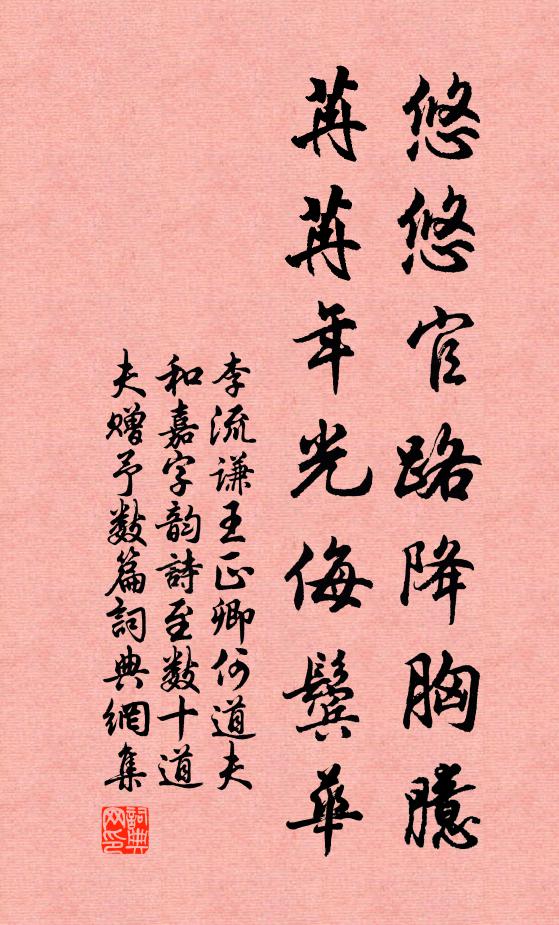 悠悠官路降胸臆
苒苒年光侮鬓華
李流谦王正卿何道夫
和嘉字韵詩至数十道
夫赠予数篇詞典網集
詞典网印